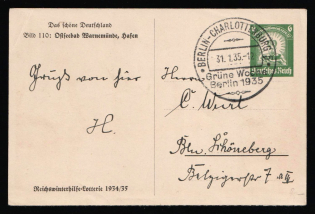 Das schöne Deutschland
Bild 110: Ostseebad Warnemünde, Hafen
BERLIN-CHARLOTTENBURG
31.1.35.
Grüne Wo
Berlin 1935
6
Deutsches Reich
Gruß von hier
H.
Herrn
C. Wirl
Bln. Schöneberg
Belzigerstr 7 a III
Reichswinterhilfe-Lotterie 1934/35